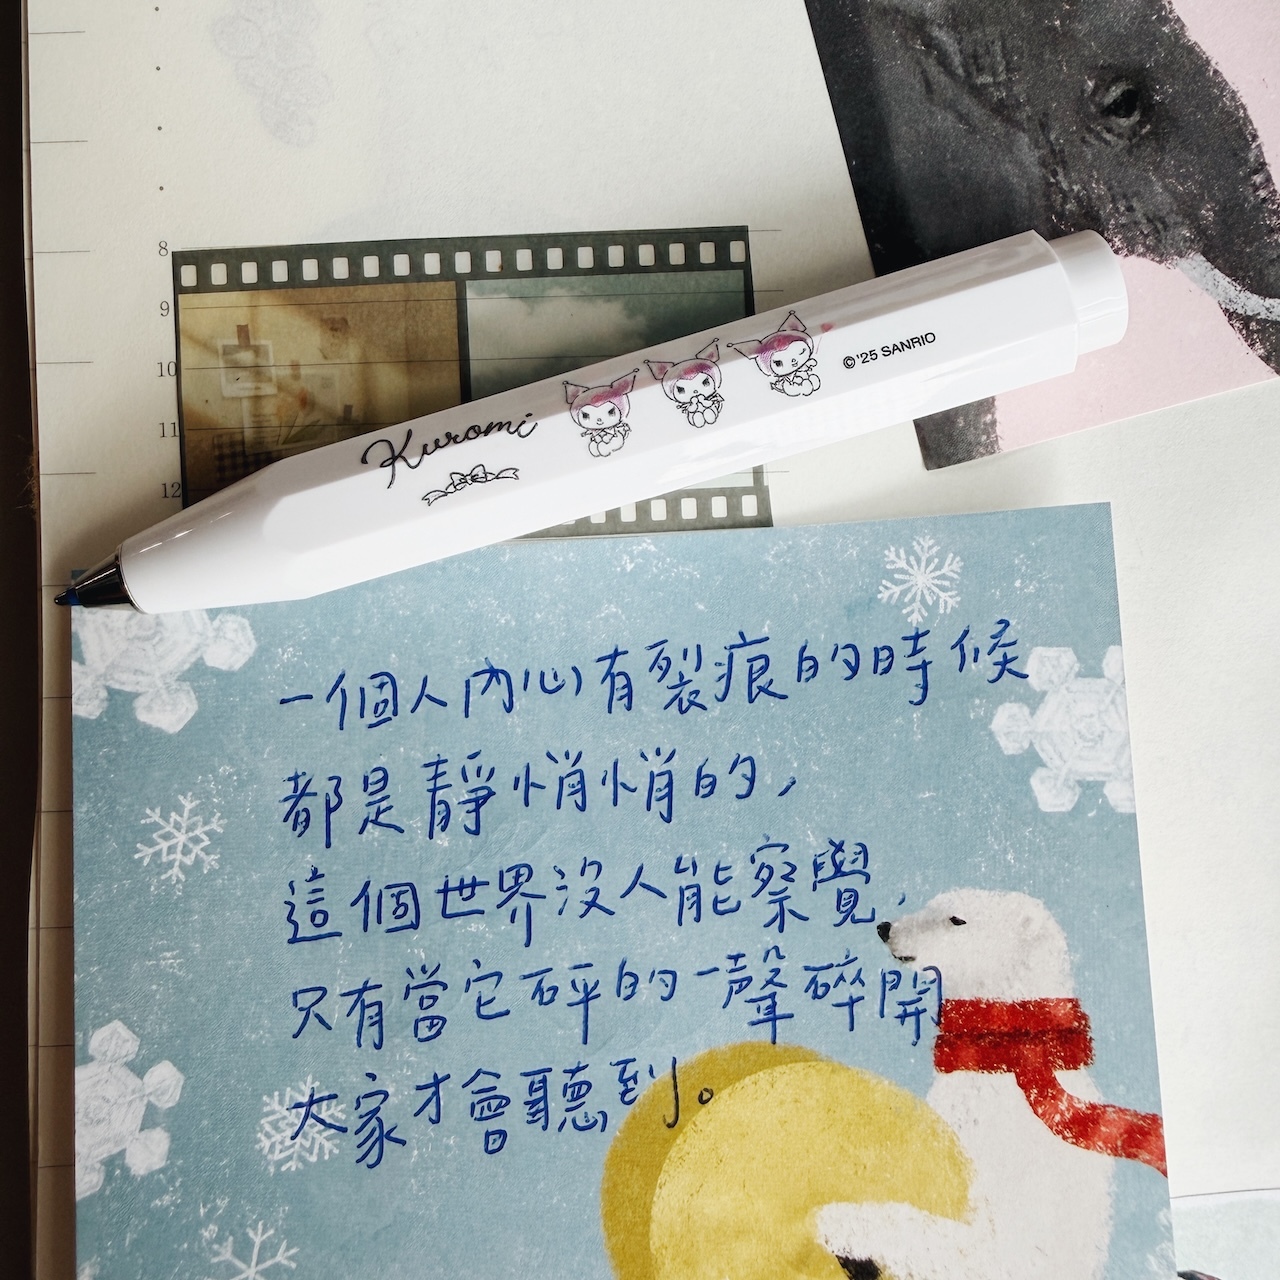 8
9
10
11
12
Kuromi
©'25 SANRIO
一個人內心有裂痕的時候
都是靜悄悄的，
這個世界沒人能察覺，
只有當它砰的一聲碎開
大家才會聽到。